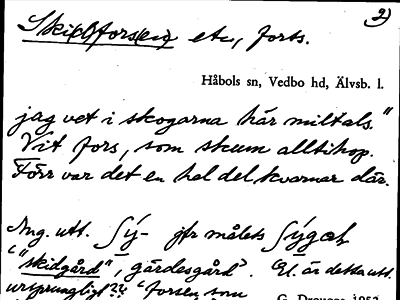 2)
Ski(d)fors(en) etc, forts.
Håbols sn, Vedbo hd, Älvsb. l.
jag vet i skogarna här miltals."
Vit fors, som skum alltihop.
Förr var det en hel del kvarnar där.
Ang. utt. ʃy- jfr målets ʃygaʃ
"skidgård", gärdesgård'. är detta utt.
ursprungligt?? 'forsen som